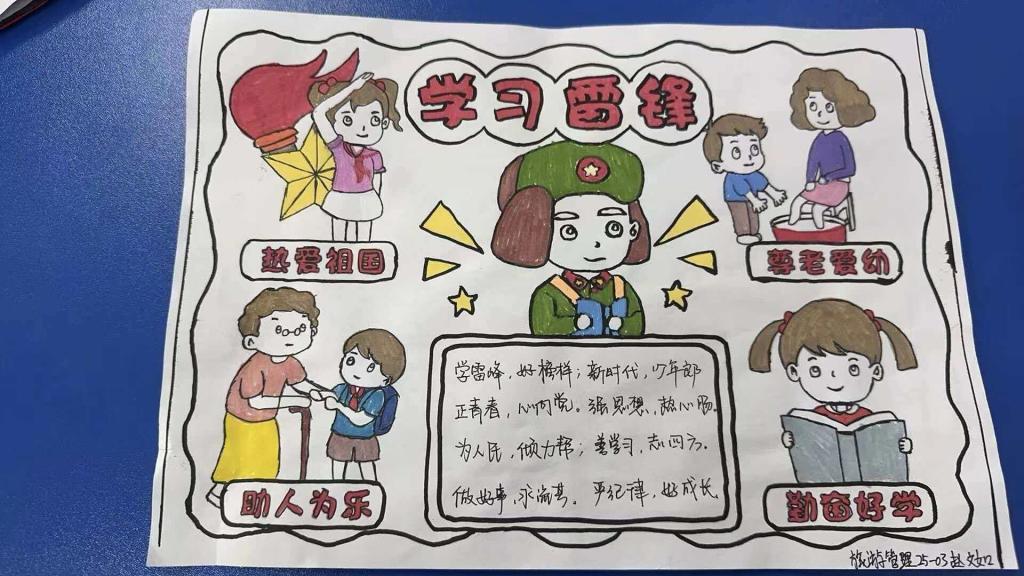 学习雷锋
热爱祖国
尊老爱幼
学雷峰，好榜样；新时代，少年郎
正青春，心向党。强思想，热心肠。
为人民，倾力帮；善学习，志四方。
做好事，永尚其。严纪律，好成长
助人为乐
勤奋好学
旅游管理25-03赵文如